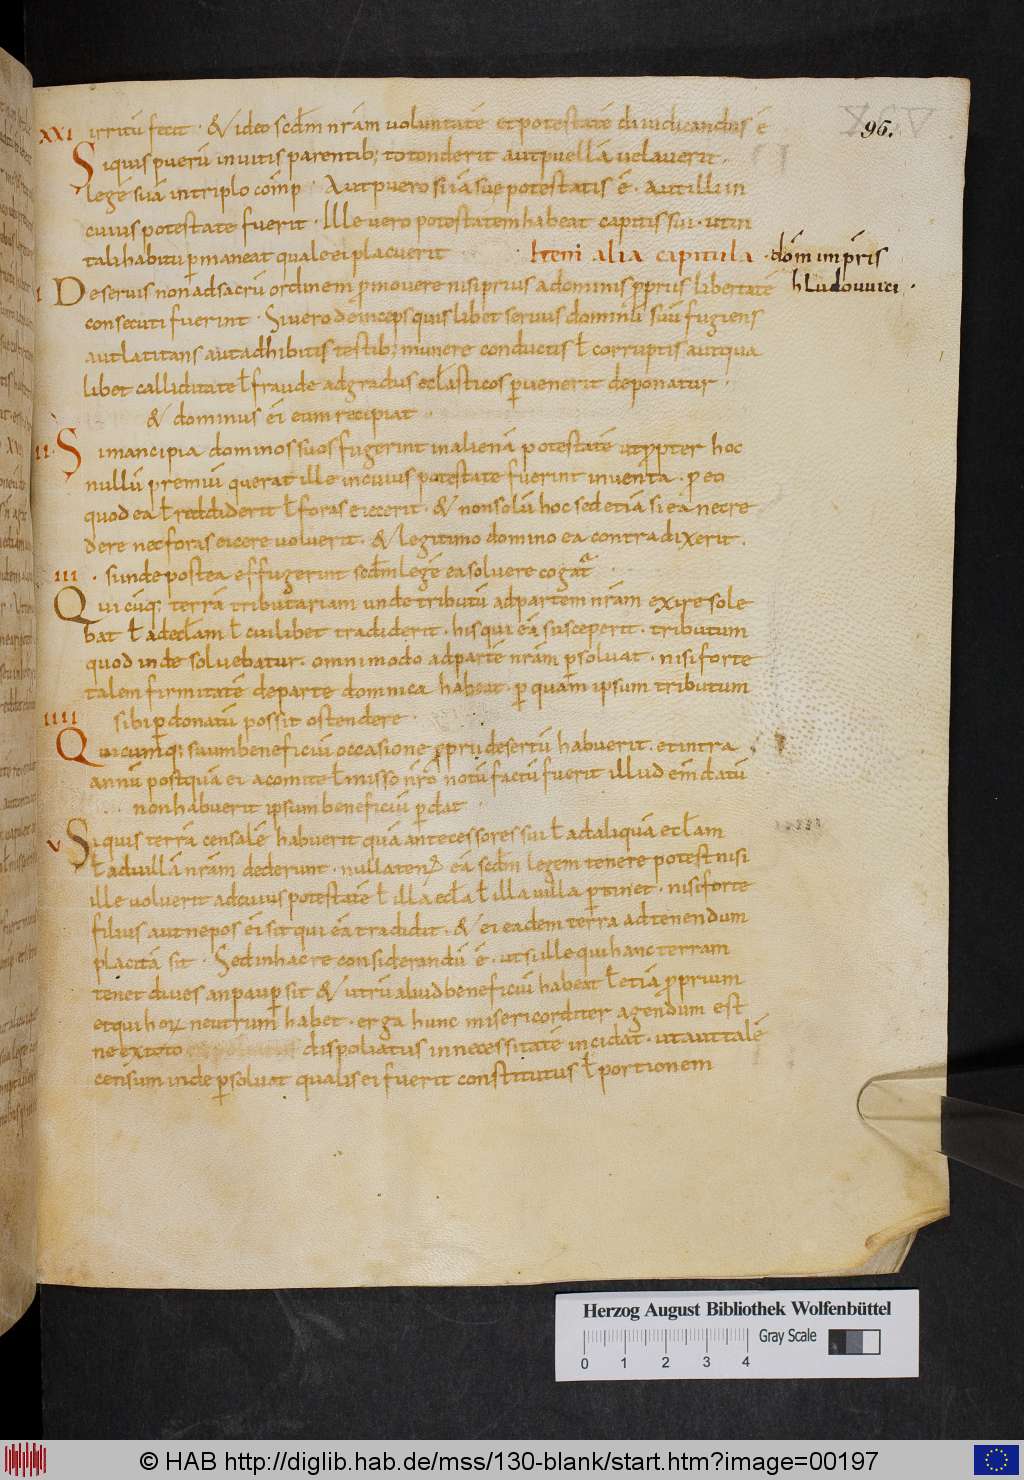 95.
XXI irritū fecit · & ideo scdm nram voluntatē et potestatē diiudicandus ē
Si quis puerū invitis parentib; totonderit aut puellā velaverit ·
legē suā in triplo cōmp · Aut puero si iā suę potestatis ē · aut illi in
cuius potestate fuerit · Ille vero potestatem habeat capitis sui · ut in
tali habitu pmaneat quale ei placuerit · Item alia capitula · dom impris
hludouuici ·
I De servis non ad sacrū ordinem pmovere nisi prius a dominis pprus libertatē
consecuti fuerint · Si vero deinceps quislibet servus dominū suū fugiens
aut latitans aut adhibitis testib; munere conductis ł corruptis aut qua
libet calliditate ł fraude ad gradus eclasticos pvenerit deponatur ·
& dominus ei eum recipiat ·
II · Si mancipia dominos suos fugerint in alienā potestatē ut ppter hoc
nullū premiū querat ille in cuius potestate fuerint inventa · p eo
quod ea ł reddiderit ł foras eiecerit · & non solū hoc sed etiā si ea nec re
dere nec foras eicere voluerit · & legitimo domino ea contradixerit ·
si inde postea effugerint scdm legē ea solvere cogat
III Qui cūq; terrā tributariam unde tributū ad partem nram exire sole
bat ł ad eclam ł cuilibet tradiderit · his qui eā susceperit · tributum
quod inde solvebatur · omnimodo ad partē nram psolvat · nisi forte
talem firmitatē de parte dominica habeat · p quam ipsum tributum
sibi pdonatū possit ostendere ·
IIII Quicumq; suum beneficiū occasione pprii desertū habuerit · et intra
annū postquā ei a comite ł misso nro notū factū fuerit illud em̄datū
non habuerit ipsum beneficiū pdat ·
V Si quis terrā censalē habuerit quā antecessores sui ł ad aliquā ecclam
ł ad villā nram dederunt · nullaten; eā scdm legem tenere potest nisi
ille voluerit ad cuius potestatē ł illa ecla ł illa villa ptinet · nisi forte
filius aut nepos ei sit qui eā tradidit · & ei eadem terra ad tenendum
placita sit · Sed in hac re considerandū ē · ut si ille qui hanc terram
tenet dives an paup sit & utrū aliud beneficiū habeat ł etiā pprium
et qui horꝝ neutrum habet · erga hunc misericorditer agendum est
ne ex toto dispoliatus in necessitatē incidat · ut aut talē
censum inde psolvat qualis ei fuerit constitutus ł portionem
Herzog August Bibliothek Wolfenbüttel
Gray Scale
0 1 2 3 4
© HAB http://diglib.hab.de/mss/130-blank/start.htm?image=00197